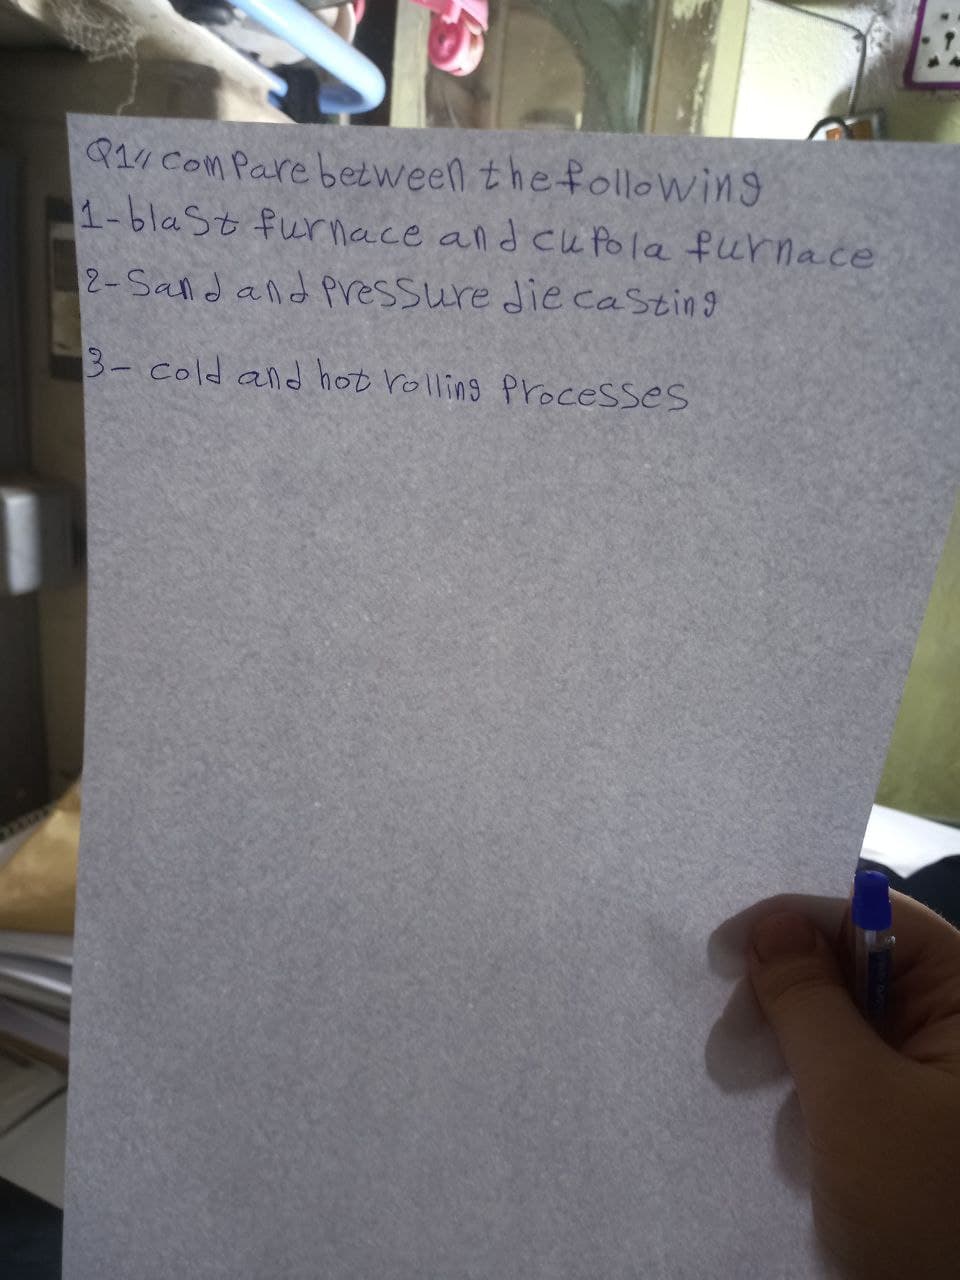 Q1// compare between the following
1- blast furnace and cupola furnace
2- Sand and Pressure die casting
3- cold and hot rolling Processes